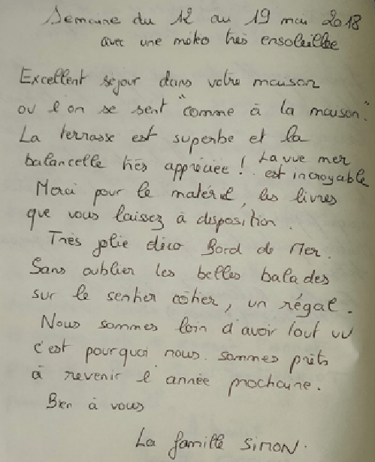 Semaine du 12 au 19 mai 2018
avec une météo très ensoleillée
Excellent séjour dans votre maison
où l'on se sent "comme à la maison".
La terrasse est superbe et la
balancelle très appréciée ! La vue mer
est incroyable
Merci pour le matériel, les livres
que vous laissez à disposition.
Très jolie déco Bord de Mer.
Sans oublier les belles balades
sur le sentier côtier, un régal.
Nous sommes loin d'avoir tout vu
c'est pourquoi nous sommes prêts
à revenir l'année prochaine.
Bien à vous
La famille SIMON.